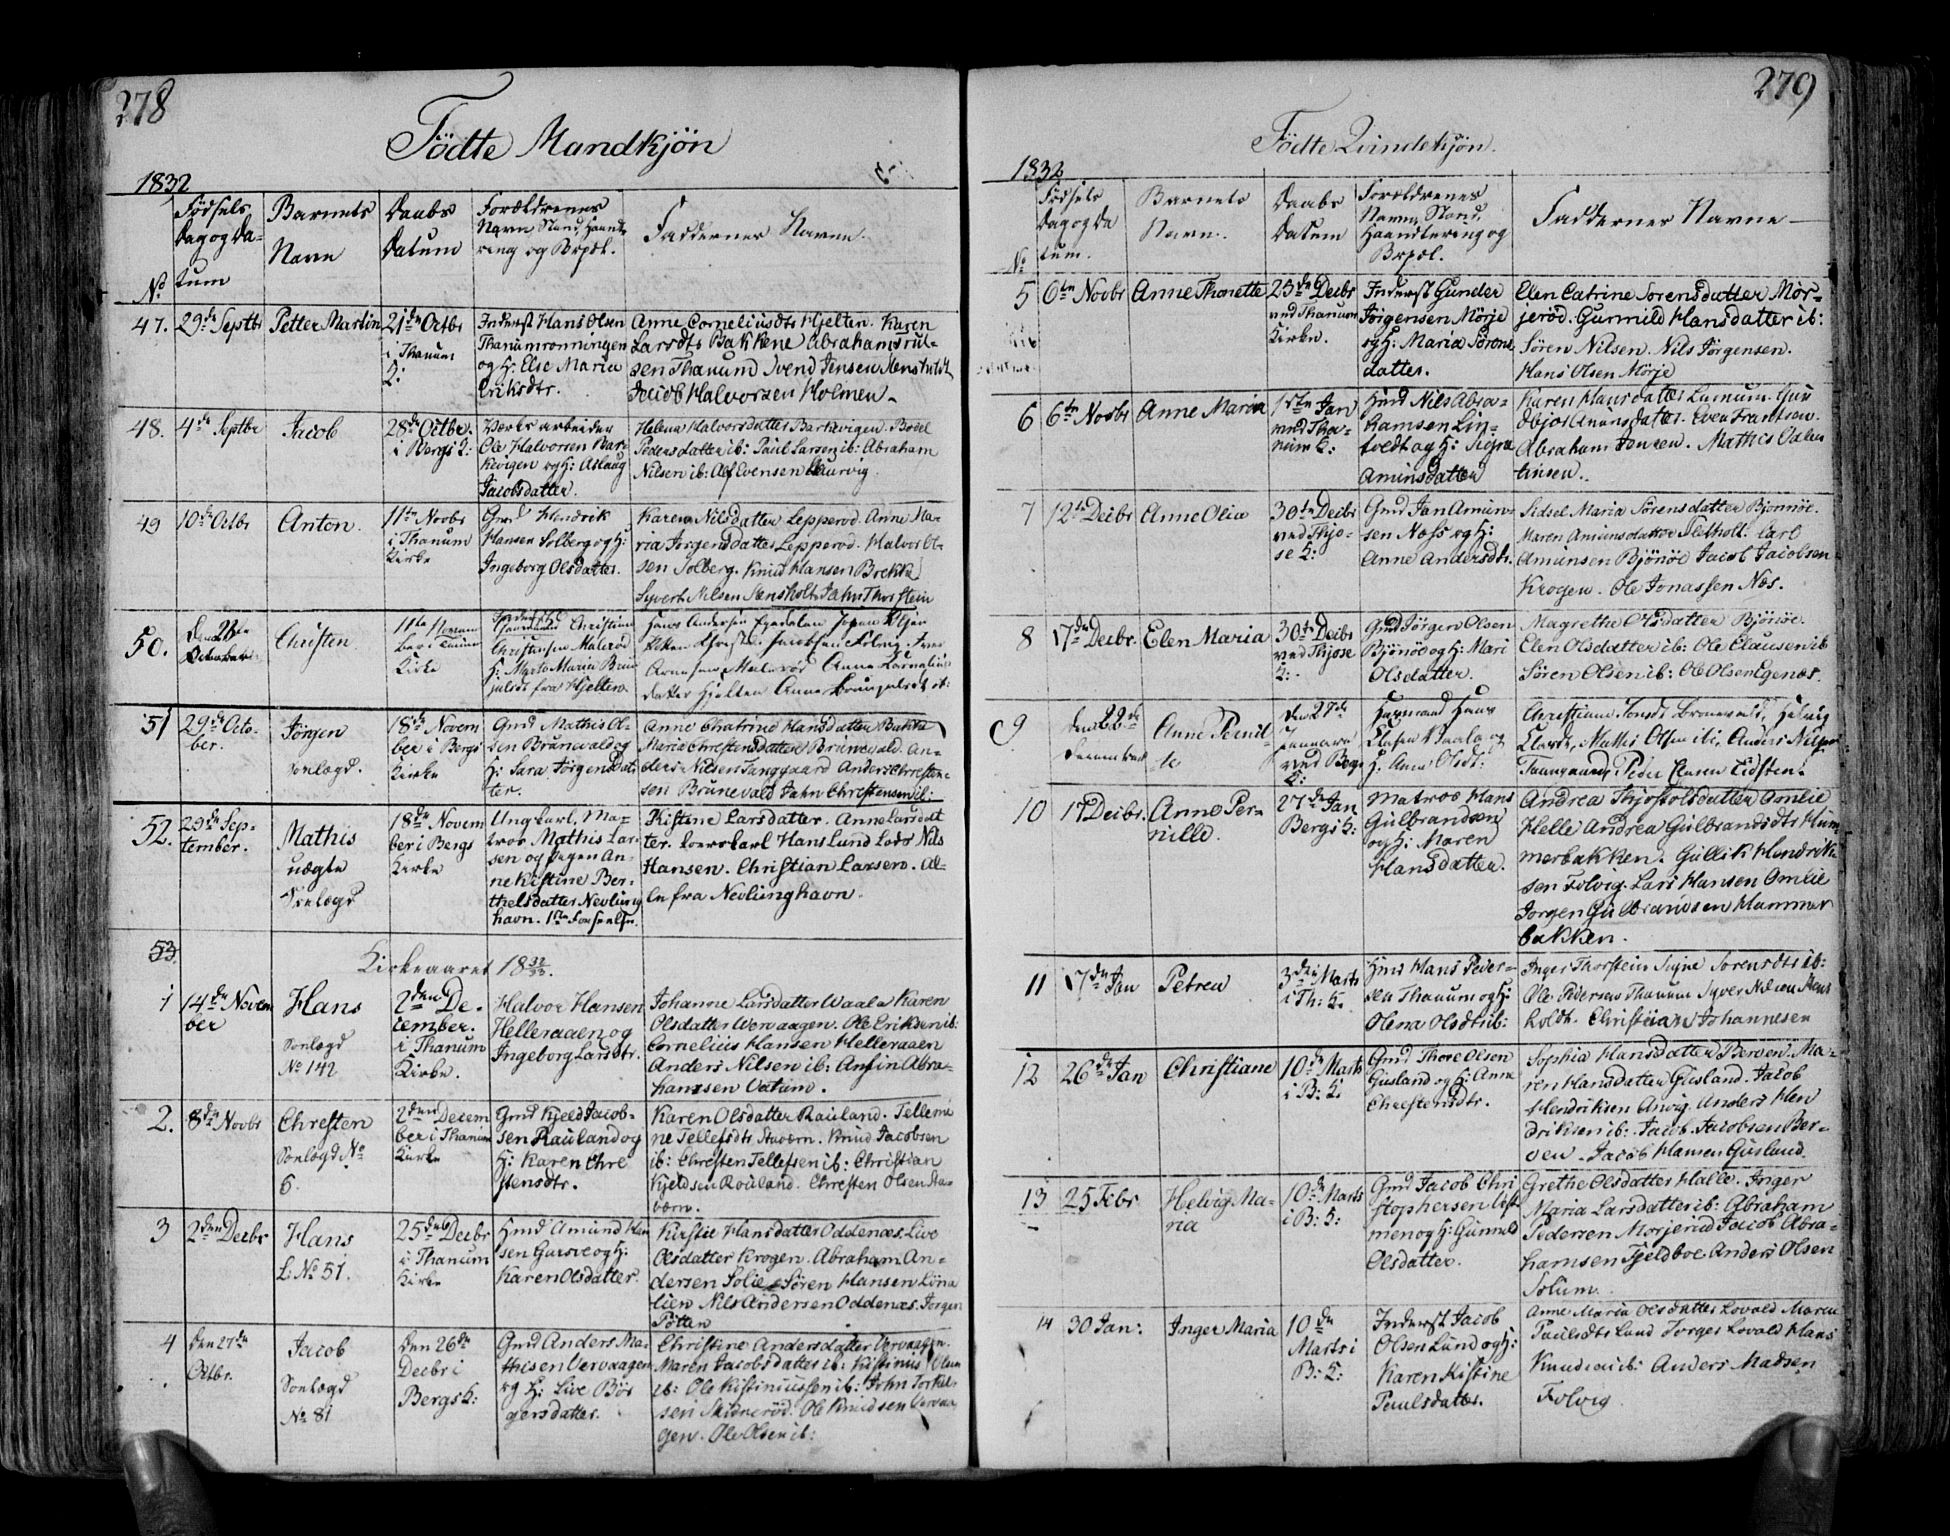 278
Födte Mandkjön
1832
No
Födsels Dag og Da-
tum
Barnets
Navn
Daabs
Datum
Forældrenes
Navn Stand Haandte
ring og Bopæl.
Faddernes Navne.
47.
29de Septbr
Petter Martin
21de Octbr
i Thanum
K:
Inderst Hans Olsen
Thanumronningen
og H: Else Maria
Eriksdtr.
Anne Corneliusdtr Hjelten. Karen
Larsdtr Bakkene Abraham
sen Thanum Svend Jensen
Jacob Halvorsen Holmen.
48.
4de Septbr
Jacob
28de Octbr.
i Bergs K:
Værksarbeider
Ole Halvorsen Bar-
kevigen og H: Aslaug
Jacobsdatter.
Helena Halvorsdatter Barkevigen. Bodel
Pedersdatter ib: Paul Larsen ib: Abraham
Nilsen ib: Alf Evensen Laurvig.
49
10de Octbr
Anton.
11te Novbr
i Thanum
Kirke
Gmd Hendrik
Hansen Solberg og H:
Ingeborg Olsdatter.
Karen Nilsdatter Lepperod. Anne Ma-
ria Jorgensdatter Lepperod. Halvor Ol-
sen Solberg. Knud Hansen Brekke
Syvert Nilsen Stensholt Jahn Thorstein
50.
Den 28de
October
Christen
11te Novem
ber i Tanum
Kirke
Christian
Christensen Malerød
H: Marte Maria Brun
julsdt fra Hjelten.
Hans Andersen
51
29de Octo-
ber.
Jörgen
Sonlægd.
18de Novem
ber i Bergs
Kirke
Gmd Mathis Ol-
sen Brunevald og
H: Sara Jörgensdat
ter.
Anne Chatrine Hansdatter Bakke
Maria Christensdatter Brunevald. An-
ders Nilsen Tanggaard Anders Christen-
sen Brunevald Jahn Christensen ib:
52.
29de Sep-
tember.
Mathis
uægte
Sonlægd
18de Novem
ber i Bergs
Kirke
Ungkarl, Ma-
tros Mathis Lar-
sen og Pigen An-
ne Kistine Ber-
thelsdatter Nevlung
havn. 1ste Forseelse.
Kistine Larsdatter. Anne Larsdat
ter. Loerskarl Hans Lund Lods Nils
Hansen. Christian Larsen. Al-
le fra Nevlunghavn.
53.
Kirkeaaret 18 32/33.
1
14de Novem
ber
Hans
Sonlægd
No 142
2den De-
cember.
i Thanum
Kirke.
Halvor Hansen
Helleraaen og
Ingeborg Larsdtr.
Johanne Larsdatter Waale Karen
Olsdatter Wervaagen. Ole Eriksen ib:
Cornelius Hansen Helleraaen
Anders Nilsen ib: Anfin Abra-
hamsen Vatum.
2.
8de Novbr
Christen
Sonlægd No
6.
2den Decem
ber i Thanum
Kirke
Gmd Kjeld Jacob-
sen Rauland og
H: Karen Chre
stensdtr.
Karen Olsdatter Rauland. Tellemi
ne Tellefsdtr Staværn. Knud Jacobsen
ib: Christen Tellefsen ib: Christian
Kjeldsen Rouland. Christen Olsen Sta-
værn.
3
2den Decbr
Hans
L: No 51.
25de Decbr
i Thanum
Kirke
Hmd Amund Han
sen Gurvie og H:
Karen Olsdatter.
Kirstie Hansdatter Oddenæs. Live
Olsdatter Krogen. Abraham An-
dersen Solie. Sören Hansen Lina
lien Nils Andersen Oddenæs. Jorgen
Potten
4
Den 27de
Octbr.
Jacob
Sonlægd
No 81
Den 26de
Decbr i
Bergs K:
Gmd Anders Ma
thisen Vervaagen
og H: Live Bör
gersdatter.
Christine Andersdatter Vervaagen.
Maren Jacobsdatter ib: Kistinus Olsen
ib: Ole Kistiniussen ib: John Torkel-
sen Skidnerød. Ole Knudsen Vervaa
gen. Ole Olsen ib:
279
Födte Qvindekjön.
1832
No
Födsels
Dag og Da
tum.
Barnets
Navn.
Daabs
Datum
Forældrenes
Navn, Stand,
Haandtering og
Bopæl.
Faddernes Navne
5
6te Novbr
Anne Thonette
23de Decbr
ved Thanum
Kirke.
Inderst Gunder
Jörgensen Mörje
og H: Maria Sörens
datter.
Elen Catrine Sorensdatter Mör-
jeröd. Gunnild Hansdatter ib:
Sören Nilsen. Nils Jörgensen.
Hans Olsen Mörje
6
6te Novbr
Anne Maria
1ste Jan
ved Tha-
num K:
Hmd Nils Abra-
hamsen Lin-
tvedt og H: Sigra
Amunsdatter
Karen Hansdatter Lanum. Gu
dbjor Amunsdatter. Even Frantsen.
Abraham Jonsen. Mathis Valen
tinsen.
7
12te Decbr
Anne Olia
30te Decbr
ved Thjo-
se K:
Gmd Jan Amun-
sen Næss og H:
Anne Andersdtr.
Sidsel Maria Sörensdatter Bjonnöe.
Maren Amunsdatter Fletholt. Carl
Amunsen Bjönöe Jacob Jacobsen
Krogen. Ole Jonassen Næs.
8
17de Decbr.
Elen Maria
30te Decbr
ved Thjose
K:
Gmd Jörgen Olsen
Bjönöe og H: Mari
Olsdatter.
Magrethe Olsdatter Bjönöe.
Elen Olsdatter ib: Ole Clausen ib
Sören Olsen ib: Ole Olsen Egenæs.
9
den 22de
December
Anne Pernil-
le
den 27de
Januar
ved Bergs
K:
Huusmand Hans
Clasen Vaale og
H: Anne Olsdt:
Christiane Brunevald, Helvig
Clasdt, Mathis Olsen ib:, Anders Nilsen
Taangaard, Peder Clasen Eidsten.
10
17 Decbr.
Anne Per-
nille.
27de Jan
Bergs K:
Matros Hans
Gulbrandsen
og H: Maren
Hansdatter.
Andrea Thjostolsdatter Omlie
Helle Andrea Gulbrandsdtr Ham
merbakken. Gullik Hendrik-
sen Folvig. Lars Hansen Omlie
Jorgen Gulbrandsen Hammer
bakken.
11
17de Jan
Petrea
3die Marts
i Th: K.
Hmd Hans Peder-
sen Thanum og H:
Olena Olsdtr ib:
Inger Thorstein Signe Sorensdtr ib:
Ole Pedersen Thanum Syver Nilsen Stens
holdt. Christian Johannesen
12
26de Jan
Christiane
10de Marts
i B: K.
Gmd Thore Olsen
Gusland og H: Anne
Chrestensdtr.
Sophia Hansdatter Berven. Ma-
ren Hansdatter Gusland. Jacob
Hendriksen Anvig. Anders Hen
driksen ib: Jacob Jacobsen Ber-
ven. Jacob Hansen Gusland.
13
25 Febr
Helvig Ma-
ria
10de Marts
i B: K:
Gmd Jacob Chri
stophersen
men og H: Gunnel
Olsdatter.
Grethe Olsdatter Halle. Inger
Maria Larsdatter ib: Abraham
Pedersen Morjerød Jacob Abra-
hamsen Fjeldboe Anders Olsen
Solum.
14
30 Jan:
Inger Maria
10de
Marts i
B: K:
Inderst Jacob
Olsen Lund og H:
Karen Kistine
Paulsdatter.
Anne Maria Olsdatter Lovald Maren
Paulsdtr Lund Torger Lovald Hans
Knudsen ib: Anders Madsen
Folvig